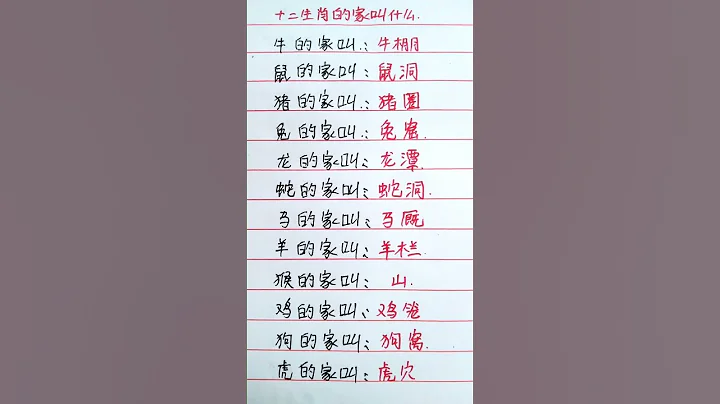 十二生肖的家叫什么.
牛的家叫:牛棚
鼠的家叫:鼠洞
猪的家叫:猪圈
兔的家叫:兔窟.
龙的家叫:龙潭.
蛇的家叫:蛇洞.
马的家叫:马厩
羊的家叫:羊栏.
猴的家叫:山.
鸡的家叫:鸡笼
狗的家叫:狗窝.
虎的家叫:虎穴